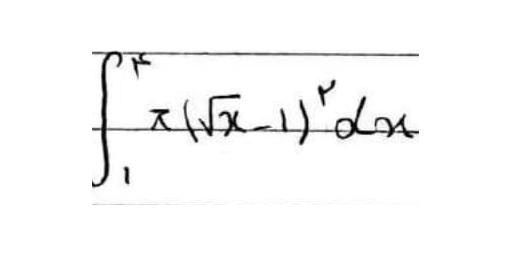 ∫₁^۴ π(√x − 1)^۲ dx